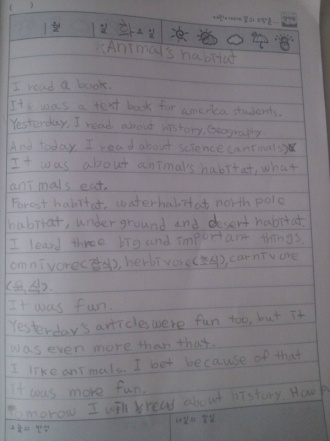 ( )
월 일 화요일
<Animal's habitat
I read a book.
It's was a text book for america students.
Yesterday, I read about history, Geography.
And today I read about science(animals)
It was about animal's habitat, what
animals eat.
Forest habitat, water habitat, north pole
habitat, underground and desert habitat
I leard three big and important things.
omnivore(잡식), herbivore(초식), carnivore
(육식).
It was fun
Yesterday's articles were fun too, but it
was even more than that.
I like animals. I bet because of that
it was more fun.
Tomorrow I will read about history. How